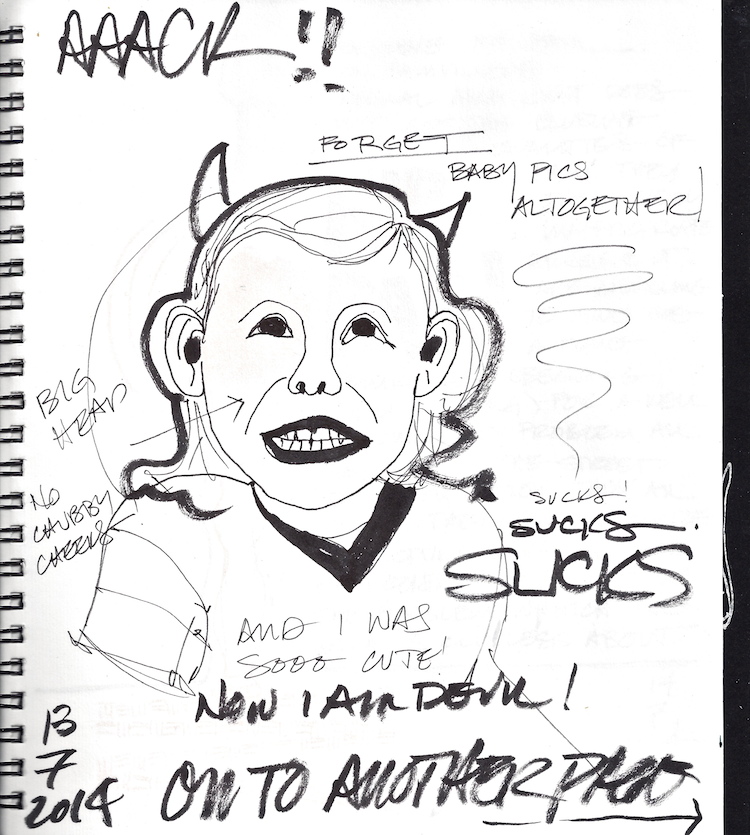 AAACK!!
FORGET
BABY PICS
ALTOGETHER!
BIG
HEAD
NO
CHUBBY
CHEEKS
SUCKS!
SUCKS.
SUCKS
AND I WAS
SOOO CUTE!
NOW I AM DEVIL!
13
7
2014
ON TO ANOTHER PAGE